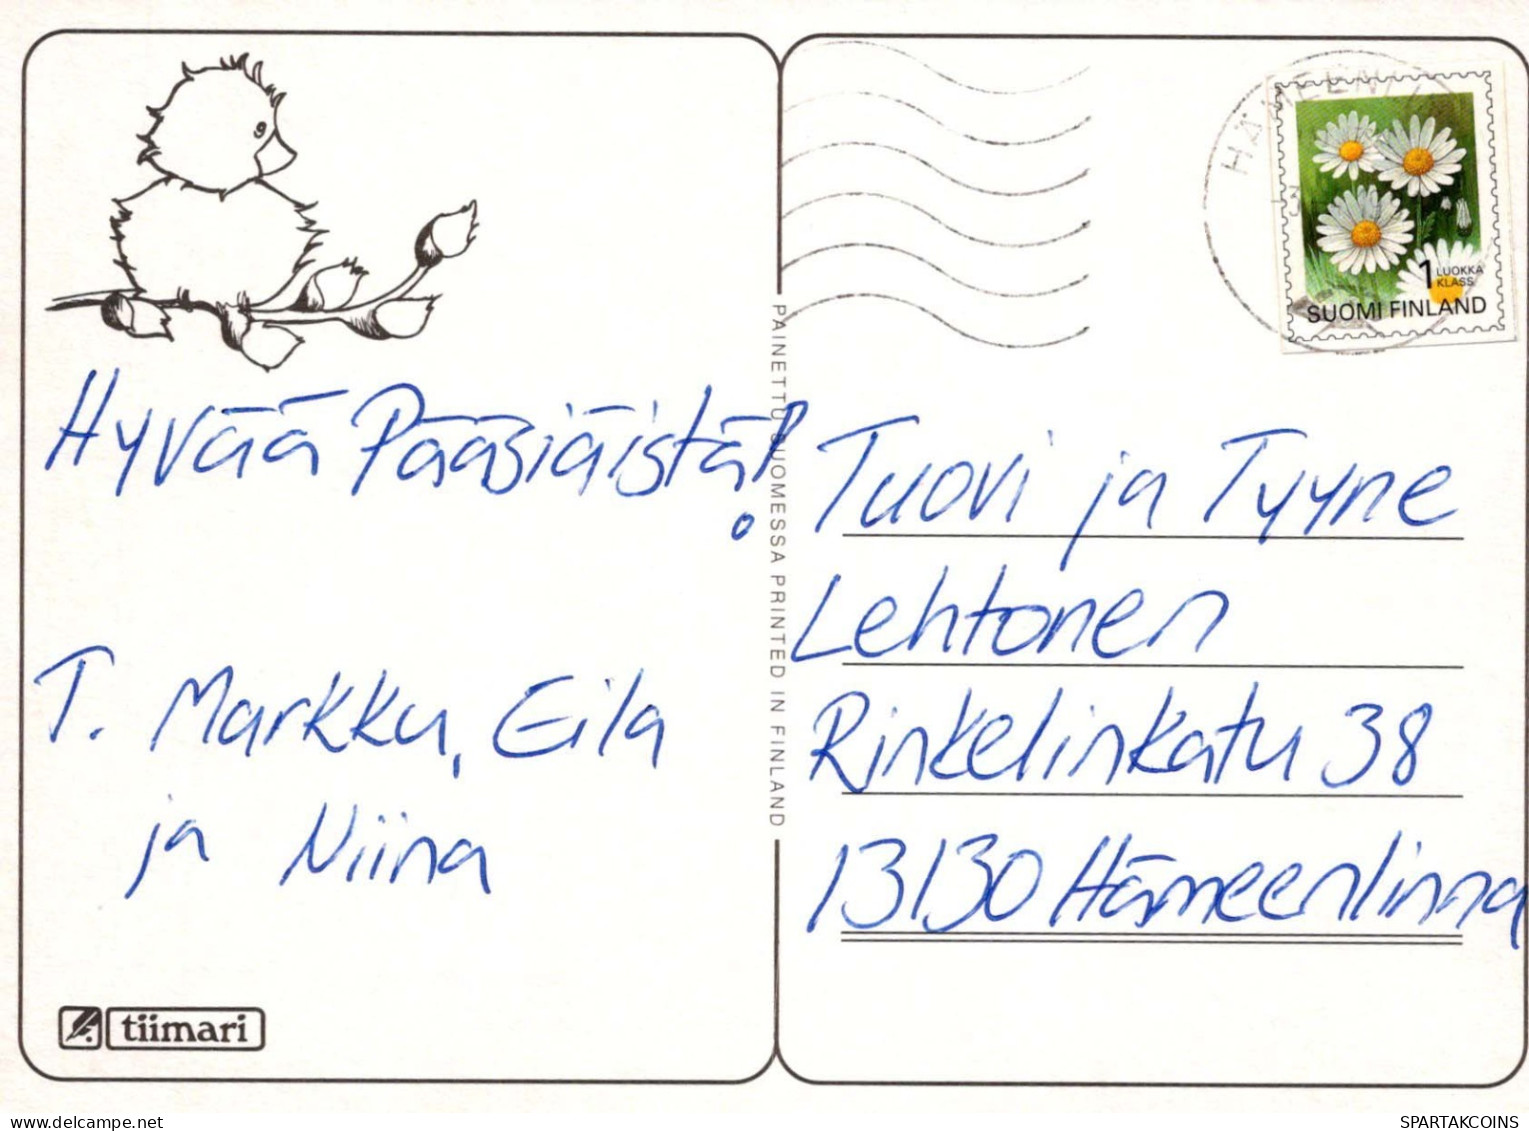 Hyvää Pääsiäistä!
T. Markku, Eila
ja Niina
tiimari
PAINETTU SUOMESSA PRINTED IN FINLAND
HÄMEENLI
1 LUOKKA
KLASS
SUOMI FINLAND
Tuovi ja Tyyne
Lehtonen
Rinkelinkatu 38
13130 Hämeenlinna
delcampe.net
SPARTAKCOINS